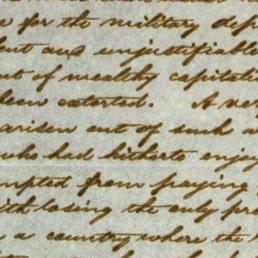 for the military dep
ent and unjustifiable
nt of wealthy capitali
been extorted. A ver
arisen out of such a
who had hitherto enjoy
mpted from paying
ith losing the only pro
a country where the